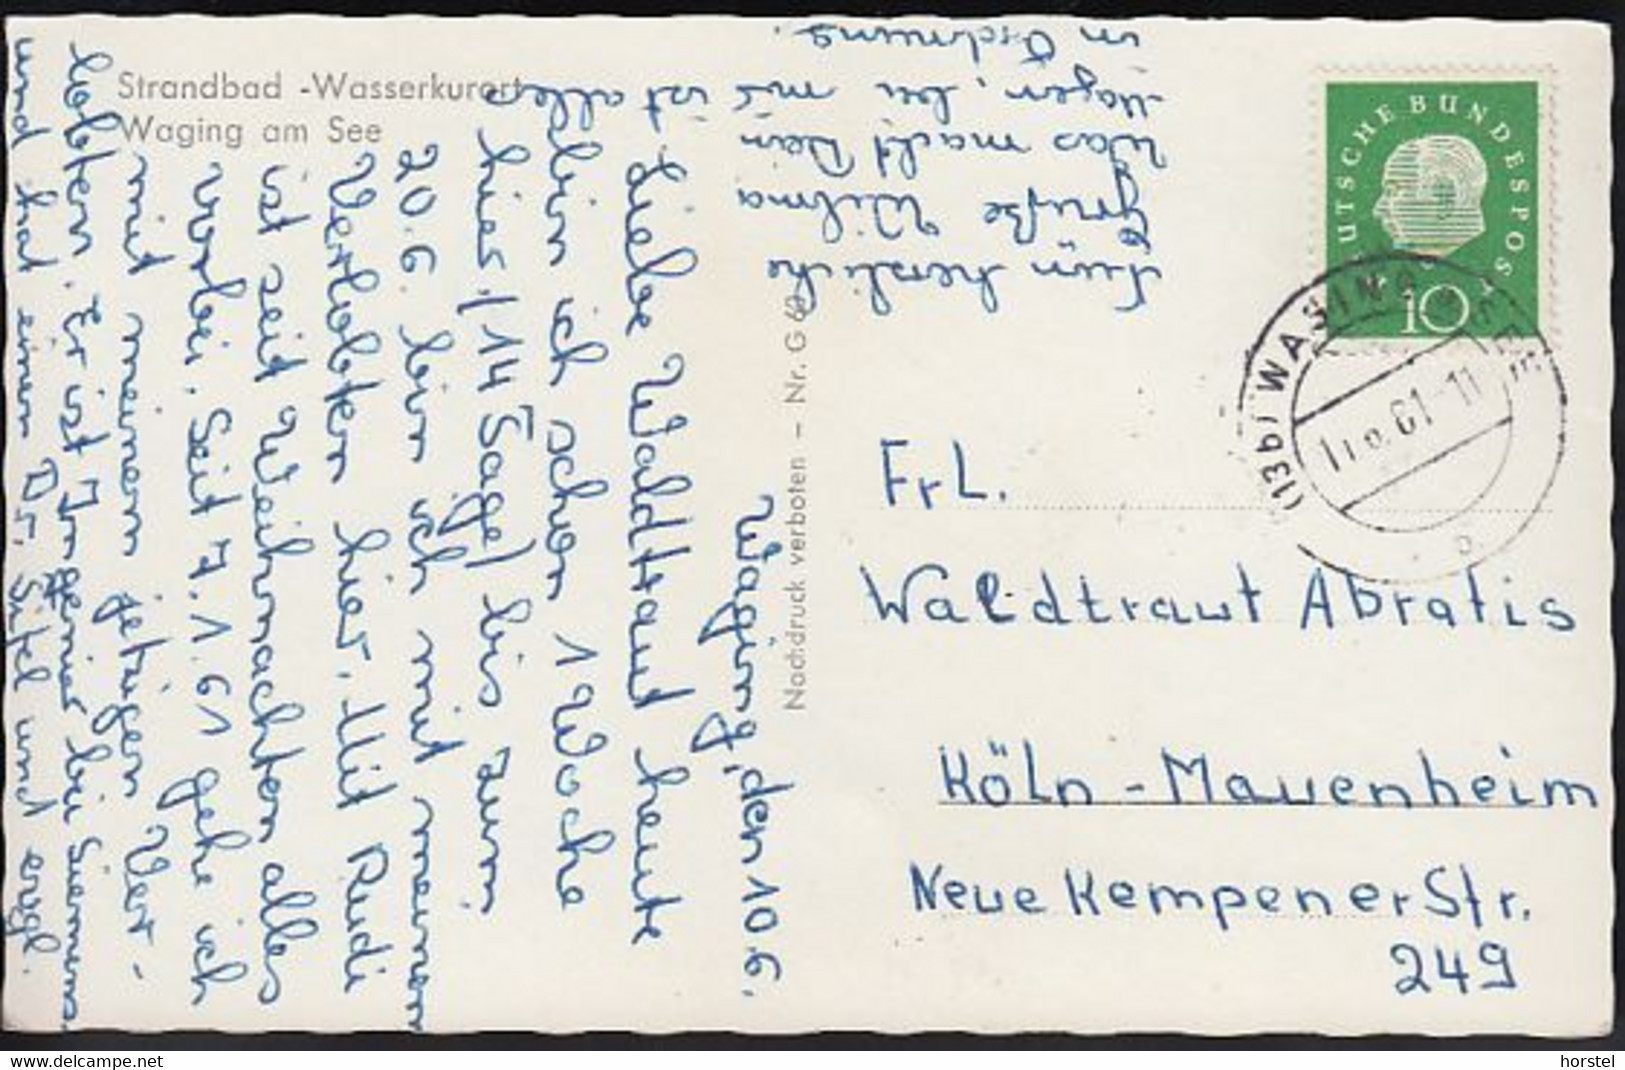 Strandbad -Wasserkurort
Waging am See
Waging, den 10.6.
Liebe Waldtraut heute
bin ich schon 1 Woche
hier, (14 Tage) bis zum
20.6. bin ich mit meinen
Verlobten hier. Mit Rudi
ist seit Weihnachten alles
vorbei. Seit 7.1.61 gehe ich
mit meinem jetzigen Ver-
lobten. Er ist Ingenier bei Siemens
und hat einen Dr. Titel und
Für herzliche
Grüße Wilma
Was macht Dein
Magen, bei mir ist alles
in Ordnung.
Nachdruck verboten – Nr. G 60
DEUTSCHE BUNDESPOST
10
(13b) WAGING
61-11
FrL.
Waldtraut Abratis
Köln - Mauenheim
Neue Kempener Str.
249
horstel